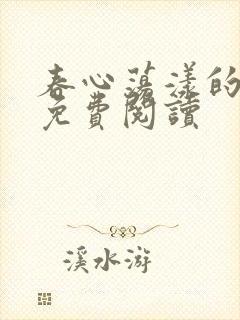 春心蕩漾的
免費閱讀
溪水游